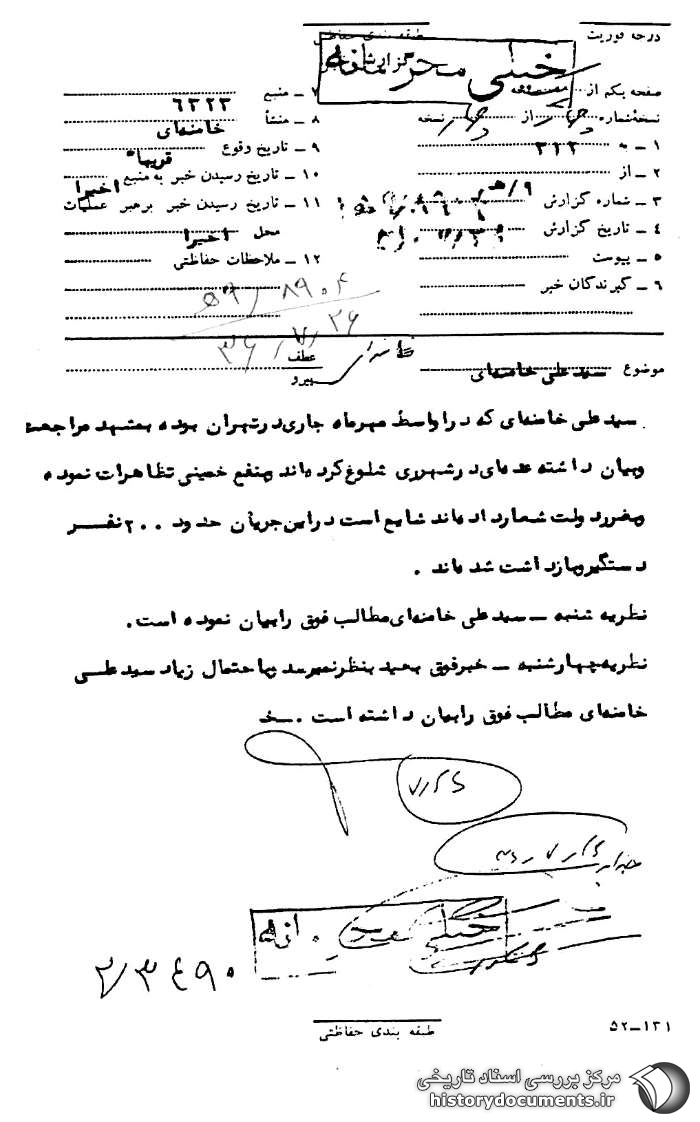 درجه فوریت
طبقه بندی حفاظتی
گزارش خبر
خیلی محرمانه
صفحه یکم از
نسخه شماره از نسخه
۱ ـ به ۳۲۲
۲ ـ از ۹/هـ
۳ ـ شماره گزارش
۴ ـ تاریخ گزارش
۵ ـ پیوست
۶ ـ گیرندگان خبر
۷ ـ منبع ۶۳۲۳
۸ ـ منشأ خامنه‌ای
۹ ـ تاریخ وقوع قریبا"
۱۰ ـ تاریخ رسیدن خبر به منبع اخیرا
۱۱ ـ تاریخ رسیدن خبر برهبر عملیات
محل اخیرا
۱۲ ـ ملاحظات حفاظتی
۵۹/۸۹۰۴
۳۶/۷/۲۶
عطف
پیرو
موضوع سید علی خامنه‌ای
سید علی خامنه‌ای که در اواسط مهرماه جاری در تهران بوده بمشهد مراجعت
وبیان داشته عده‌ای در شهرری شلوغ کرده‌اند و بنفع خمینی تظاهرات نموده
وبضرر دولت شعار داده‌اند شایع است در این جریان حدود ۲۰۰ نفر
دستگیر و بازداشت شده‌اند .
نظریه شنبه ـ سید علی خامنه‌ای مطالب فوق را بیان نموده است.
نظریه چهارشنبه ـ خبر فوق بعید بنظر نمیرسد و با احتمال زیاد سید علی
خامنه‌ای مطالب فوق را بیان داشته است .
خیلی محرمانه
۲/۳۴۹۰
طبقه بندی حفاظتی
۵۲ـ۱۳۱
مرکز بررسی اسناد تاریخی
historydocuments.ir